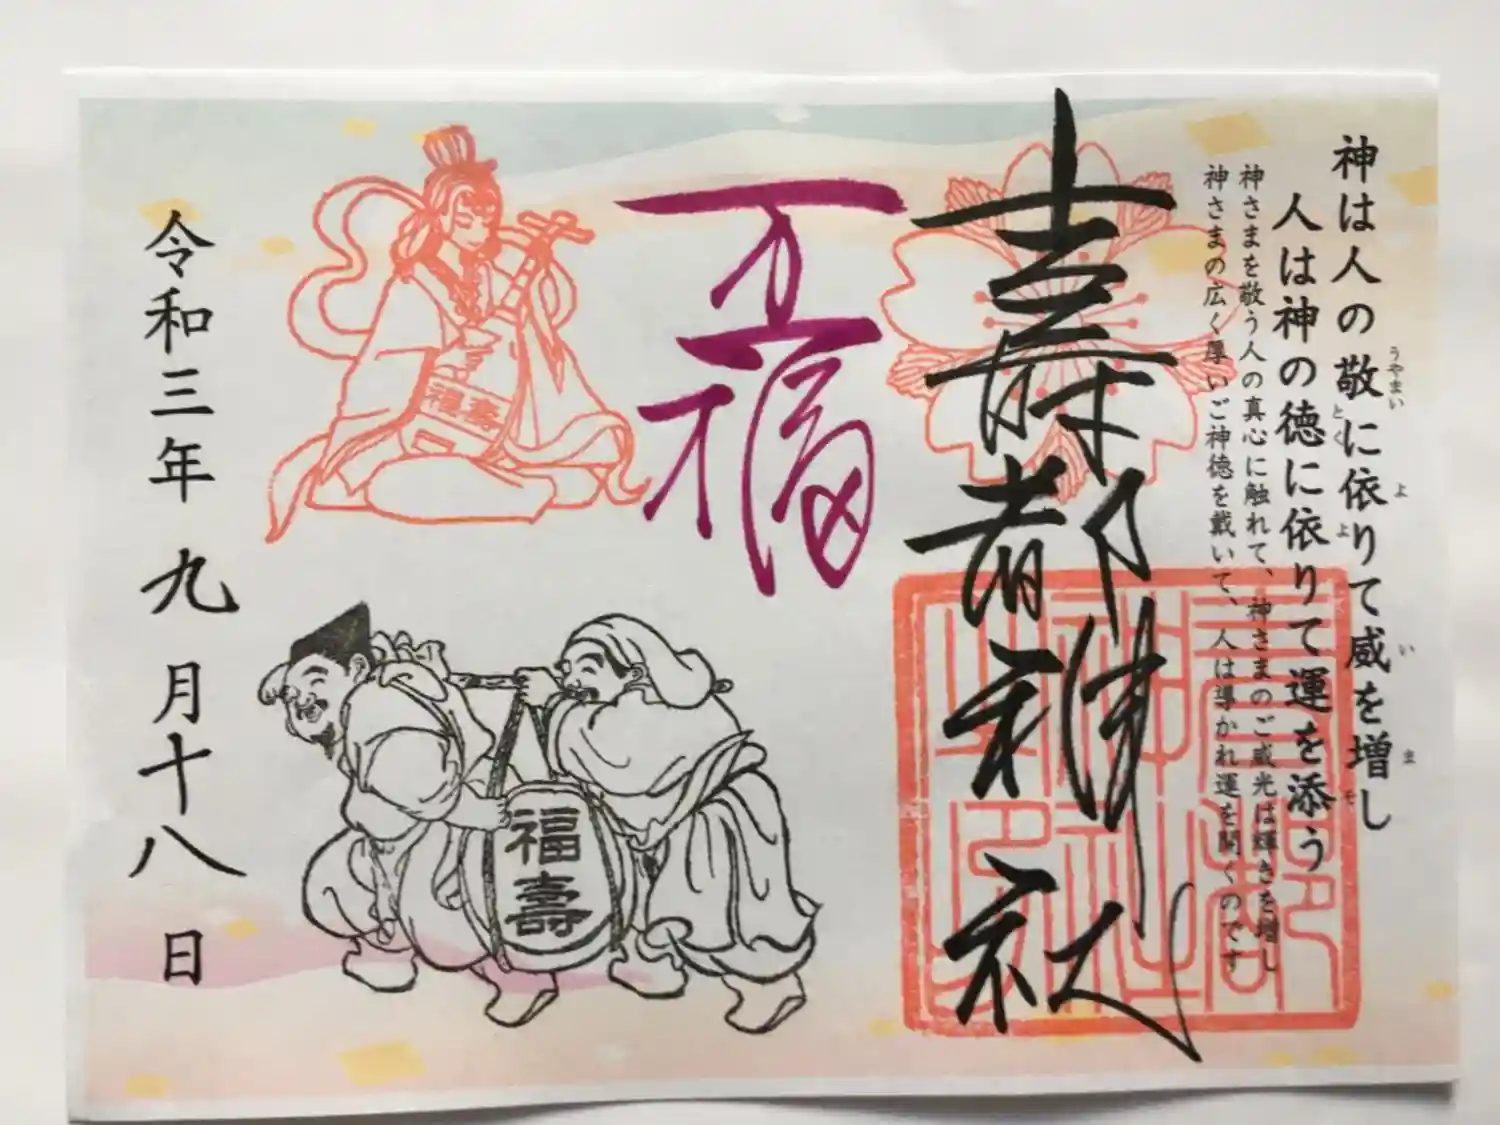 神は人の敬に依りて威を増し
うやまい
よ
い
ま
人は神の徳に依りて運を添う
とく
よ
そ
神さまを敬う人の真心に触れて、神さまのご威光は輝きを増し
神さまの広く厚いご神徳を戴いて、人は導かれ運を開くのです
壽都神社
万福
福壽
福壽
令和三年九月十八日